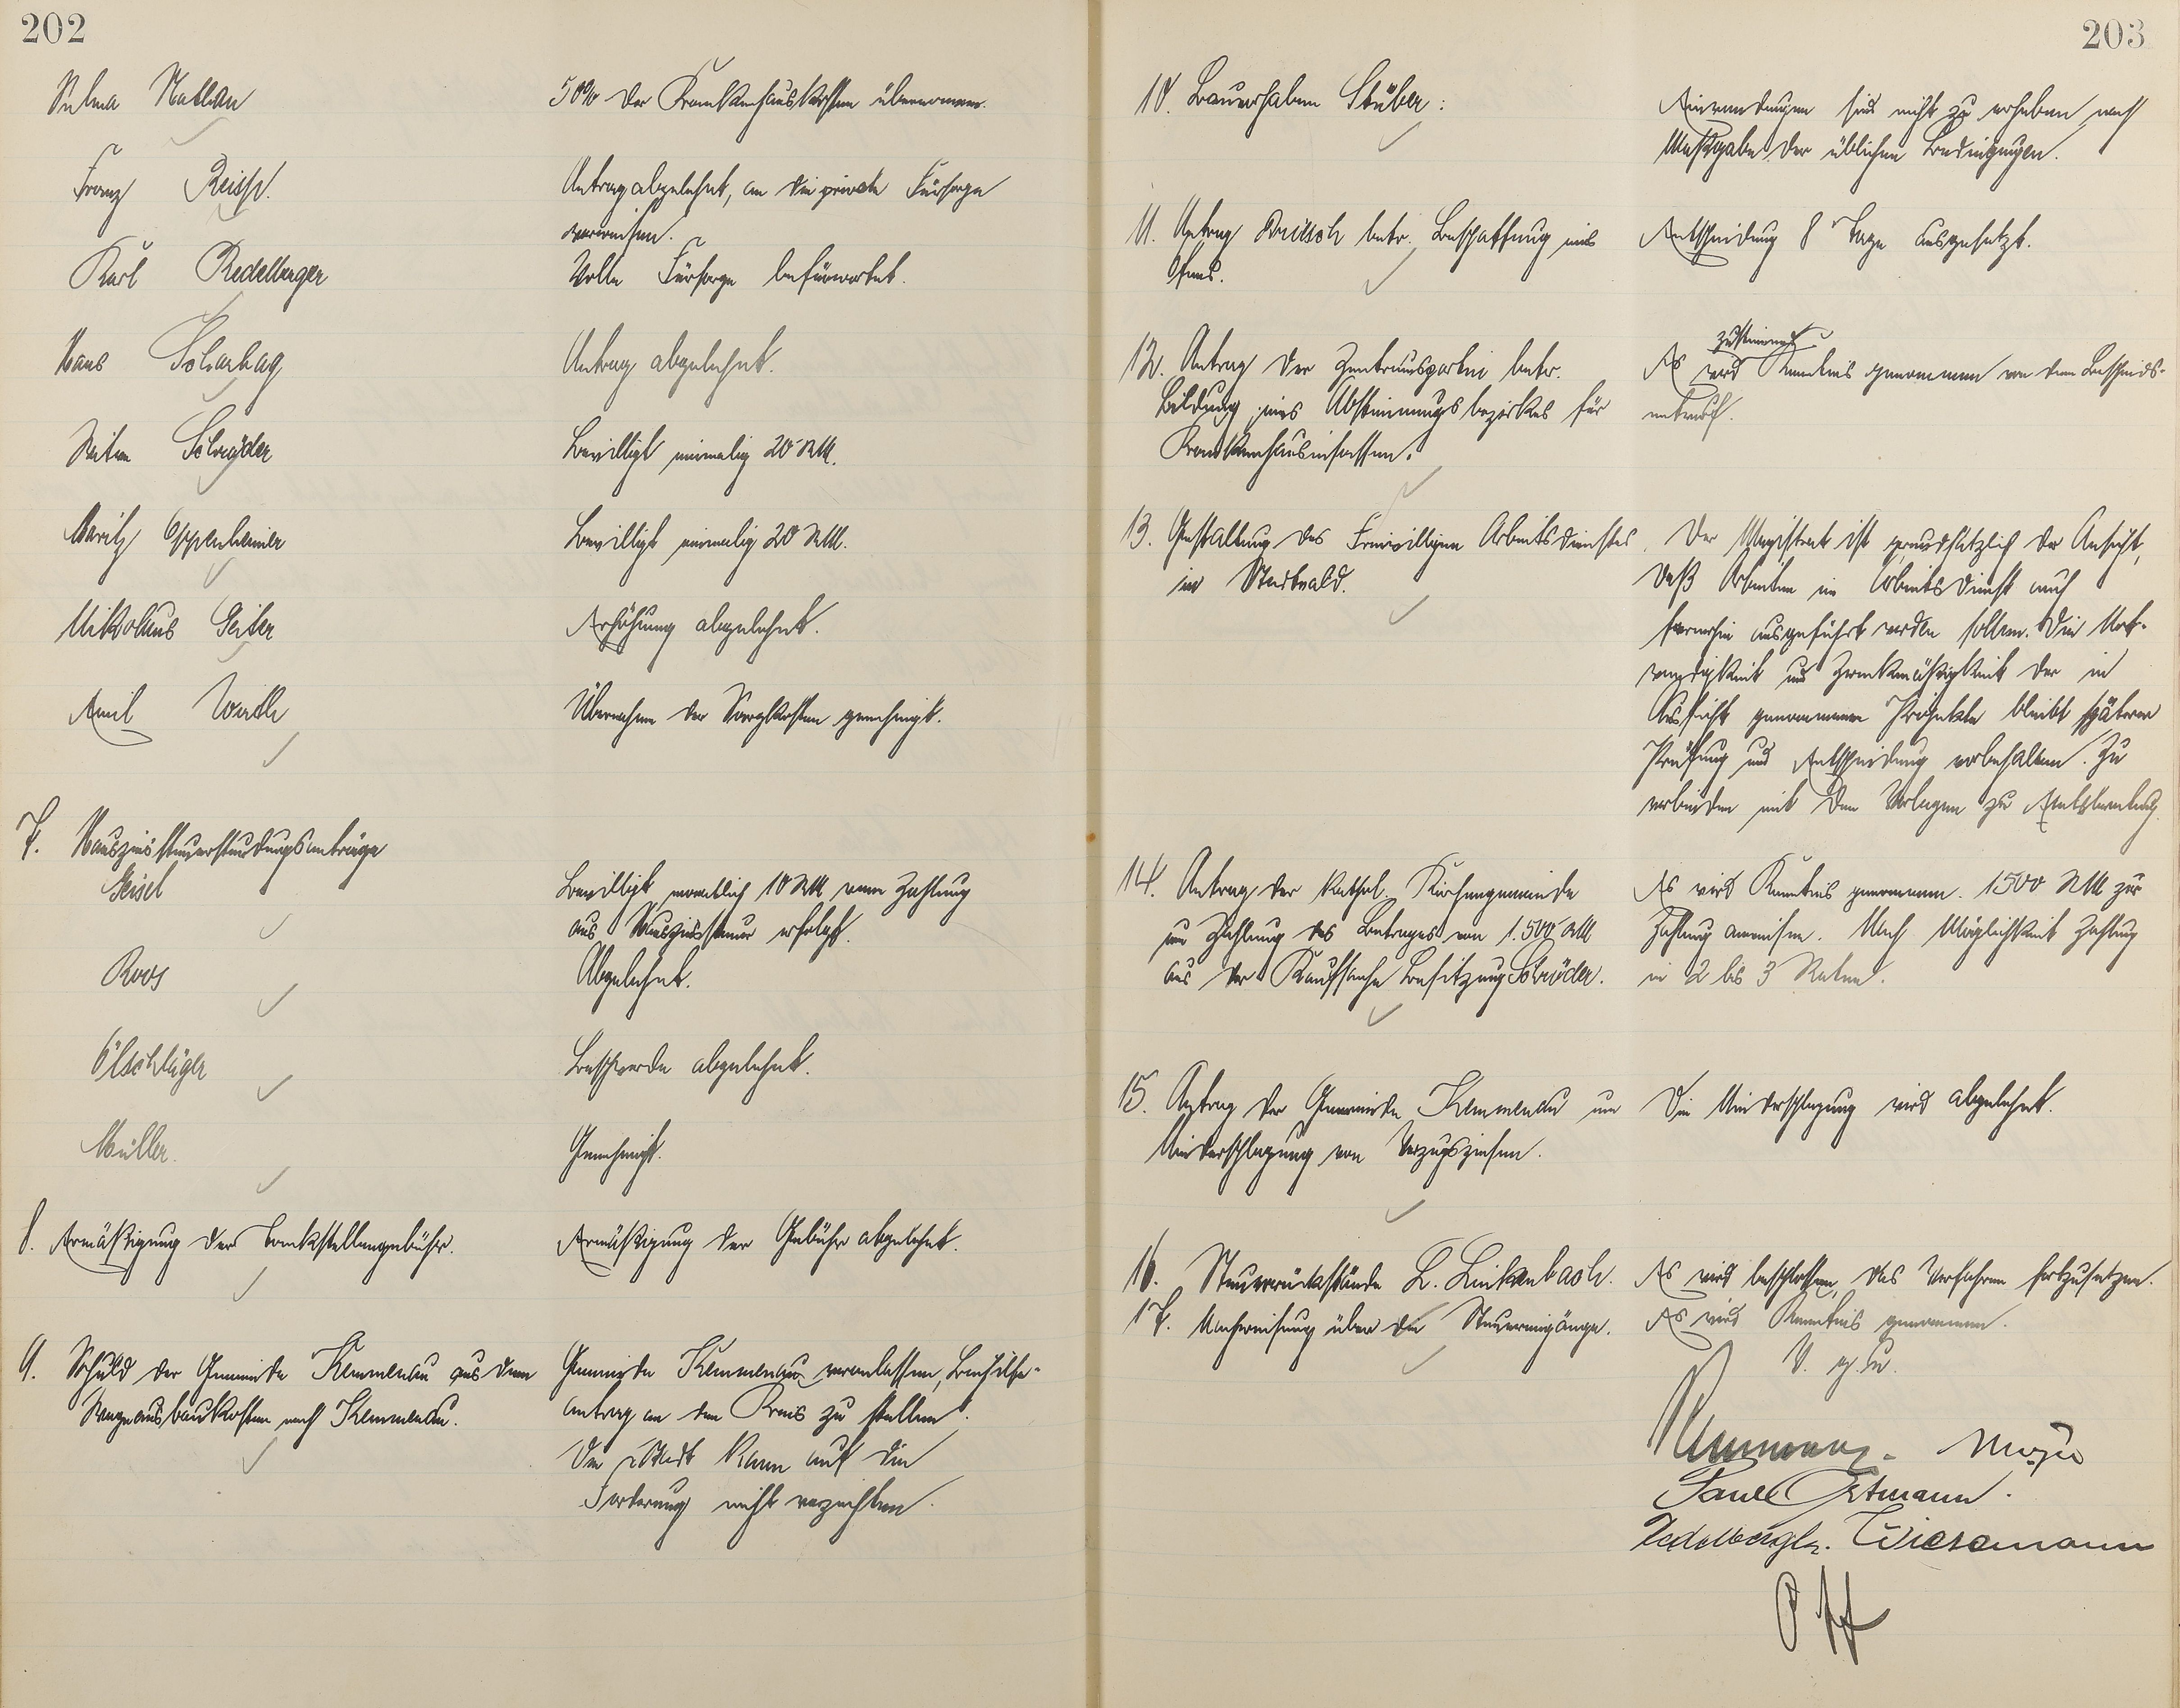 202
Selma Nathan
50% der Krankenhauskosten übernommen.
Franz Reisp.
Antrag abgelehnt, an die private Fürsorge
verwiesen.
Karl Redelberger
Volle Fürsorge befürwortet.
Hans Scharhag
Antrag abgelehnt.
Witwe Schröder
Bewilligt einmalig 20 RM.
Moritz Oppenheimer
Bewilligt einmalig 20 RM.
Nikolaus Geiter
Erhöhung abgelehnt.
Emil Werth
Übernahme der Sargkosten genehmigt.
7. Hauszinssteuerstundungsanträge
Geisel
Bewilligt monatlich 10 RM wenn Zahlung
aus Hauszinssteuer erfolgt.
Roos
Abgelehnt.
Ölschläger
Beschwerde abgelehnt.
Müller.
Genehmigt.
8. Ermäßigung der Tankstellengebühr.
Ermäßigung der Gebühr abgelehnt.
9. Schuld der Gemeinde Kemmenau aus dem
Wegeausbaukosten nach Kemmenau.
Gemeinde Kemmenau veranlassen, Beihilfe-
antrag an den Kreis zu stellen.
Die Stadt kann auf die
Forderung nicht verzichten.
203
10. Bauvorhaben Stüber:
Einwendungen sind nicht zu erheben nach
Maßgabe der üblichen Bedingungen.
11. Antrag Deutsch betr. Beschaffung eines
Ofens.
Entscheidung 8 Tage ausgesetzt.
12. Antrag der Zentrumspartei betr.
Bildung eines Abstimmungsbezirkes für
Krankenhausinsassen.
zustimmend
Es wird Kenntnis genommen von dem Bescheids-
entwurf.
13. Gestaltung des Freiwilligen Arbeitsdienstes
im Stadtwald.
Der Magistrat ist grundsätzlich der Ansicht,
daß Arbeiten im Arbeitsdienst auch
fernerhin ausgeführt werden sollen. Die Not-
wendigkeit und Zweckmäßigkeit der in
Aussicht genommenen Projekte bleibt späterer
Prüfung und Entscheidung vorbehalten. Zu
verbinden mit den Vorlagen zu
14. Antrag der kathol. Kirchengemeinde
um Zahlung des Betrages von 1.500 RM
aus der Kaufsache Besitzung Schröder.
Es wird Kenntnis genommen. 1500 RM zur
Zahlung anweisen. Nach Möglichkeit Zahlung
in 2 bis 3 Raten.
15. Antrag der Gemeinde Kemmenau um
Niederschlagung von Verzugszinsen.
Die Niederschlagung wird abgelehnt.
16. Steuerrückstände L. Linkenbach.
Es wird beschlossen, das Verfahren fortzusetzen.
17. Nachweisung über die Steuereingänge.
Es wird Kenntnis genommen.
V. g. u.
Paul Ortmann.
Redelberger. Wiesemann